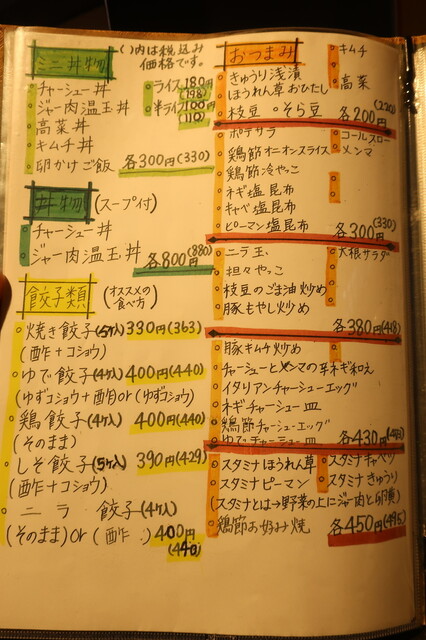 ミニ丼物
( )内は税込み
価格です。
チャーシュー丼
ジャー肉温玉丼
高菜丼
キムチ丼
卵かけご飯 各300円(330)
ライス180円
(198)
半ライス100円
(110)
丼物(スープ付)
チャーシュー丼
ジャー肉温玉丼 各800円(880)
餃子類(オススメの食べ方)
焼き餃子(5ヶ入)330円(363)
(酢+コショウ)
ゆで餃子(4ヶ入)400円(440)
(ゆずコショウ+酢)or(ゆずコショウ)
鶏餃子(4ヶ入) 400円(440)
(そのまま)
しそ餃子(5ヶ入) 390円(429)
(酢+コショウ)
ニラ 餃子(4ヶ入)
(そのまま)or(酢 ) 400円
(440)
おつまみ
キムチ
きゅうり浅漬
高菜
ほうれん草おひたし
枝豆 そら豆 各200円(220)
ポテサラ
コールスロー
鶏節オニオンスライス
メンマ
鶏節冷やっこ
ネギ塩昆布
キャベ塩昆布
ピーマン塩昆布 各300円(330)
ニラ玉
大根サラダ
担々やっこ
枝豆のごま油炒め
豚もやし炒め 各380円(418)
豚キムチ炒め
チャーシューとメンマの辛ネギ和え
イタリアンチャーシューエッグ
ネギチャーシュー皿
鶏節チャーシューエッグ
ゆでチャーシュー皿 各430円
スタミナほうれん草
スタミナキャベツ
スタミナピーマン
スタミナきゅうり
(スタミナとは→野菜の上にジャー肉と卵黄)
鶏節お好み焼 各450円(495)